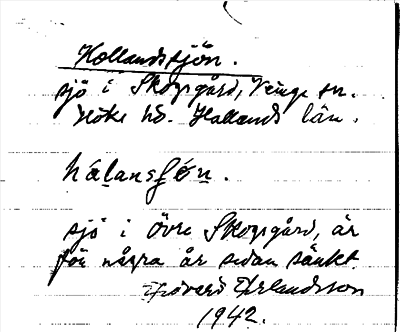 Hollandssjön.
sjö i Skogsgård, Veinge sn.
Höks hd. Hallands län.
hálansʃǿn.
sjö i Övre Skogsgård, är
för några år sedan sänkt
Edvard Erlandsson
1942.